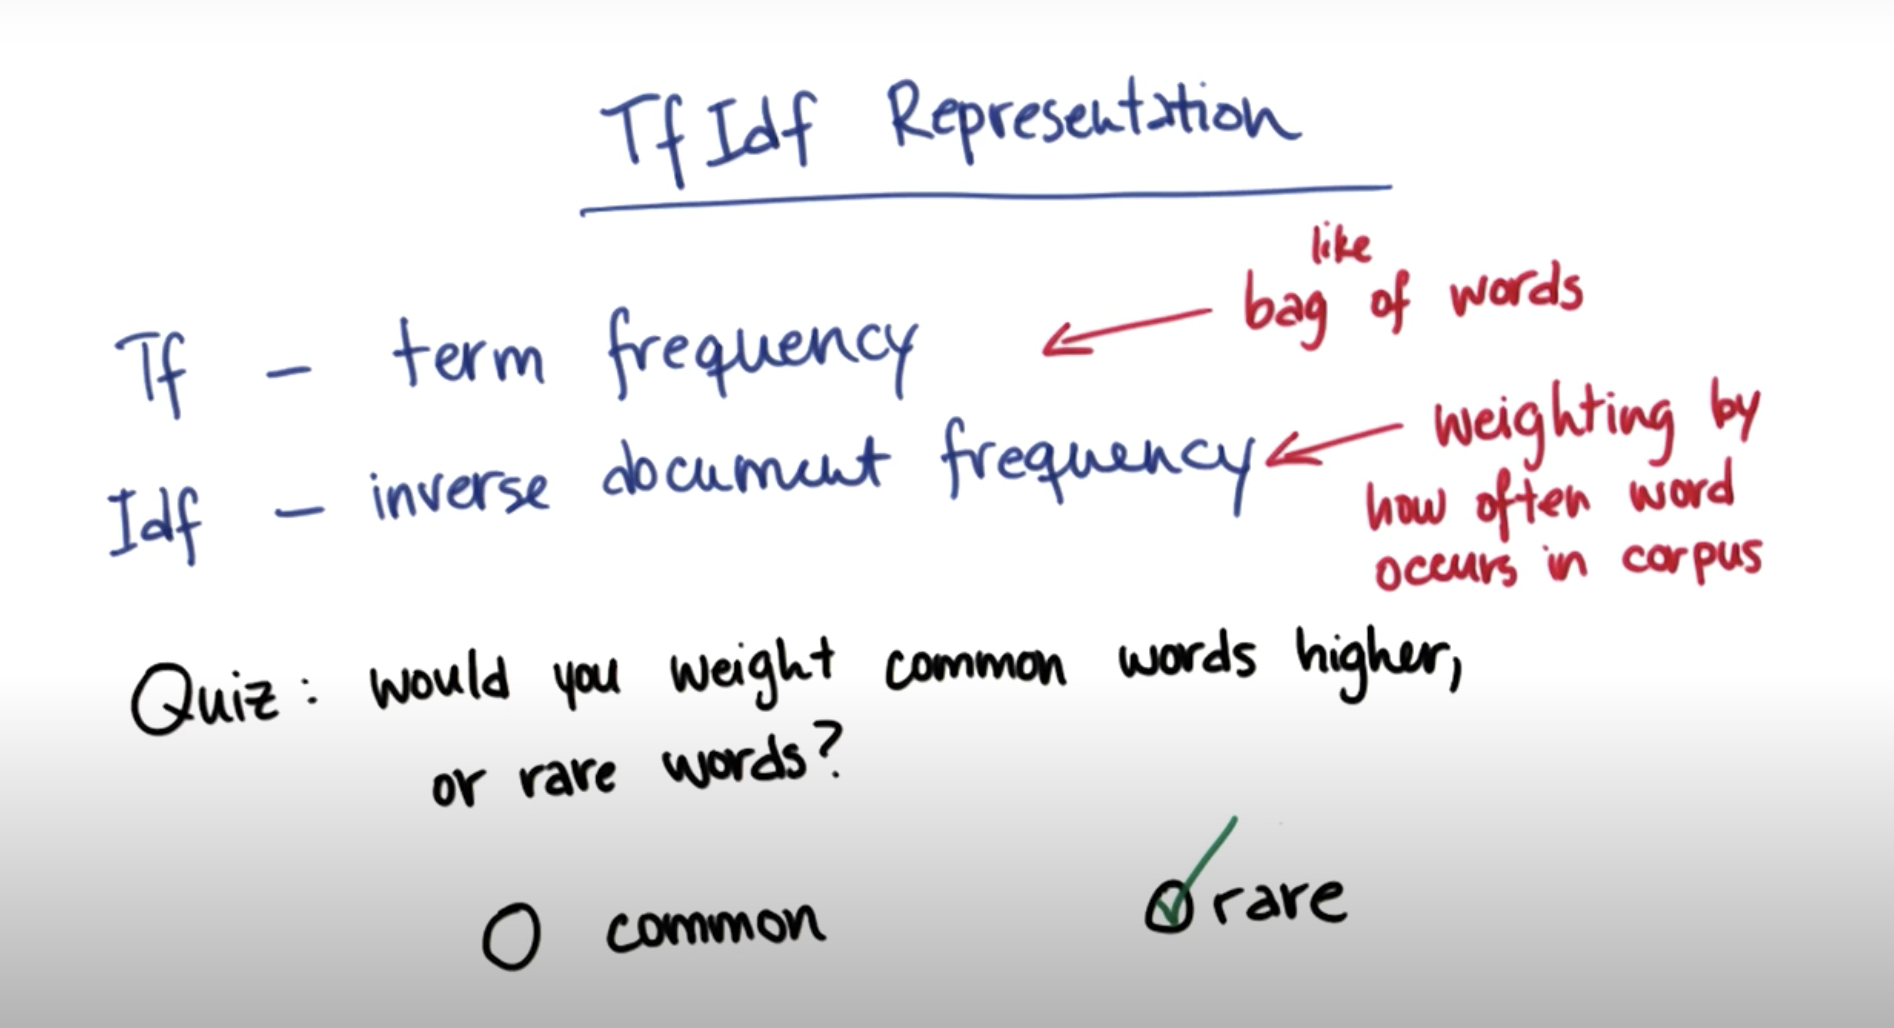 Tf Idf Representation
like
Tf - term frequency bag of words
Idf - inverse document frequency weighting by
how often word
occurs in corpus
Quiz: would you weight common words higher,
or rare words?
common rare